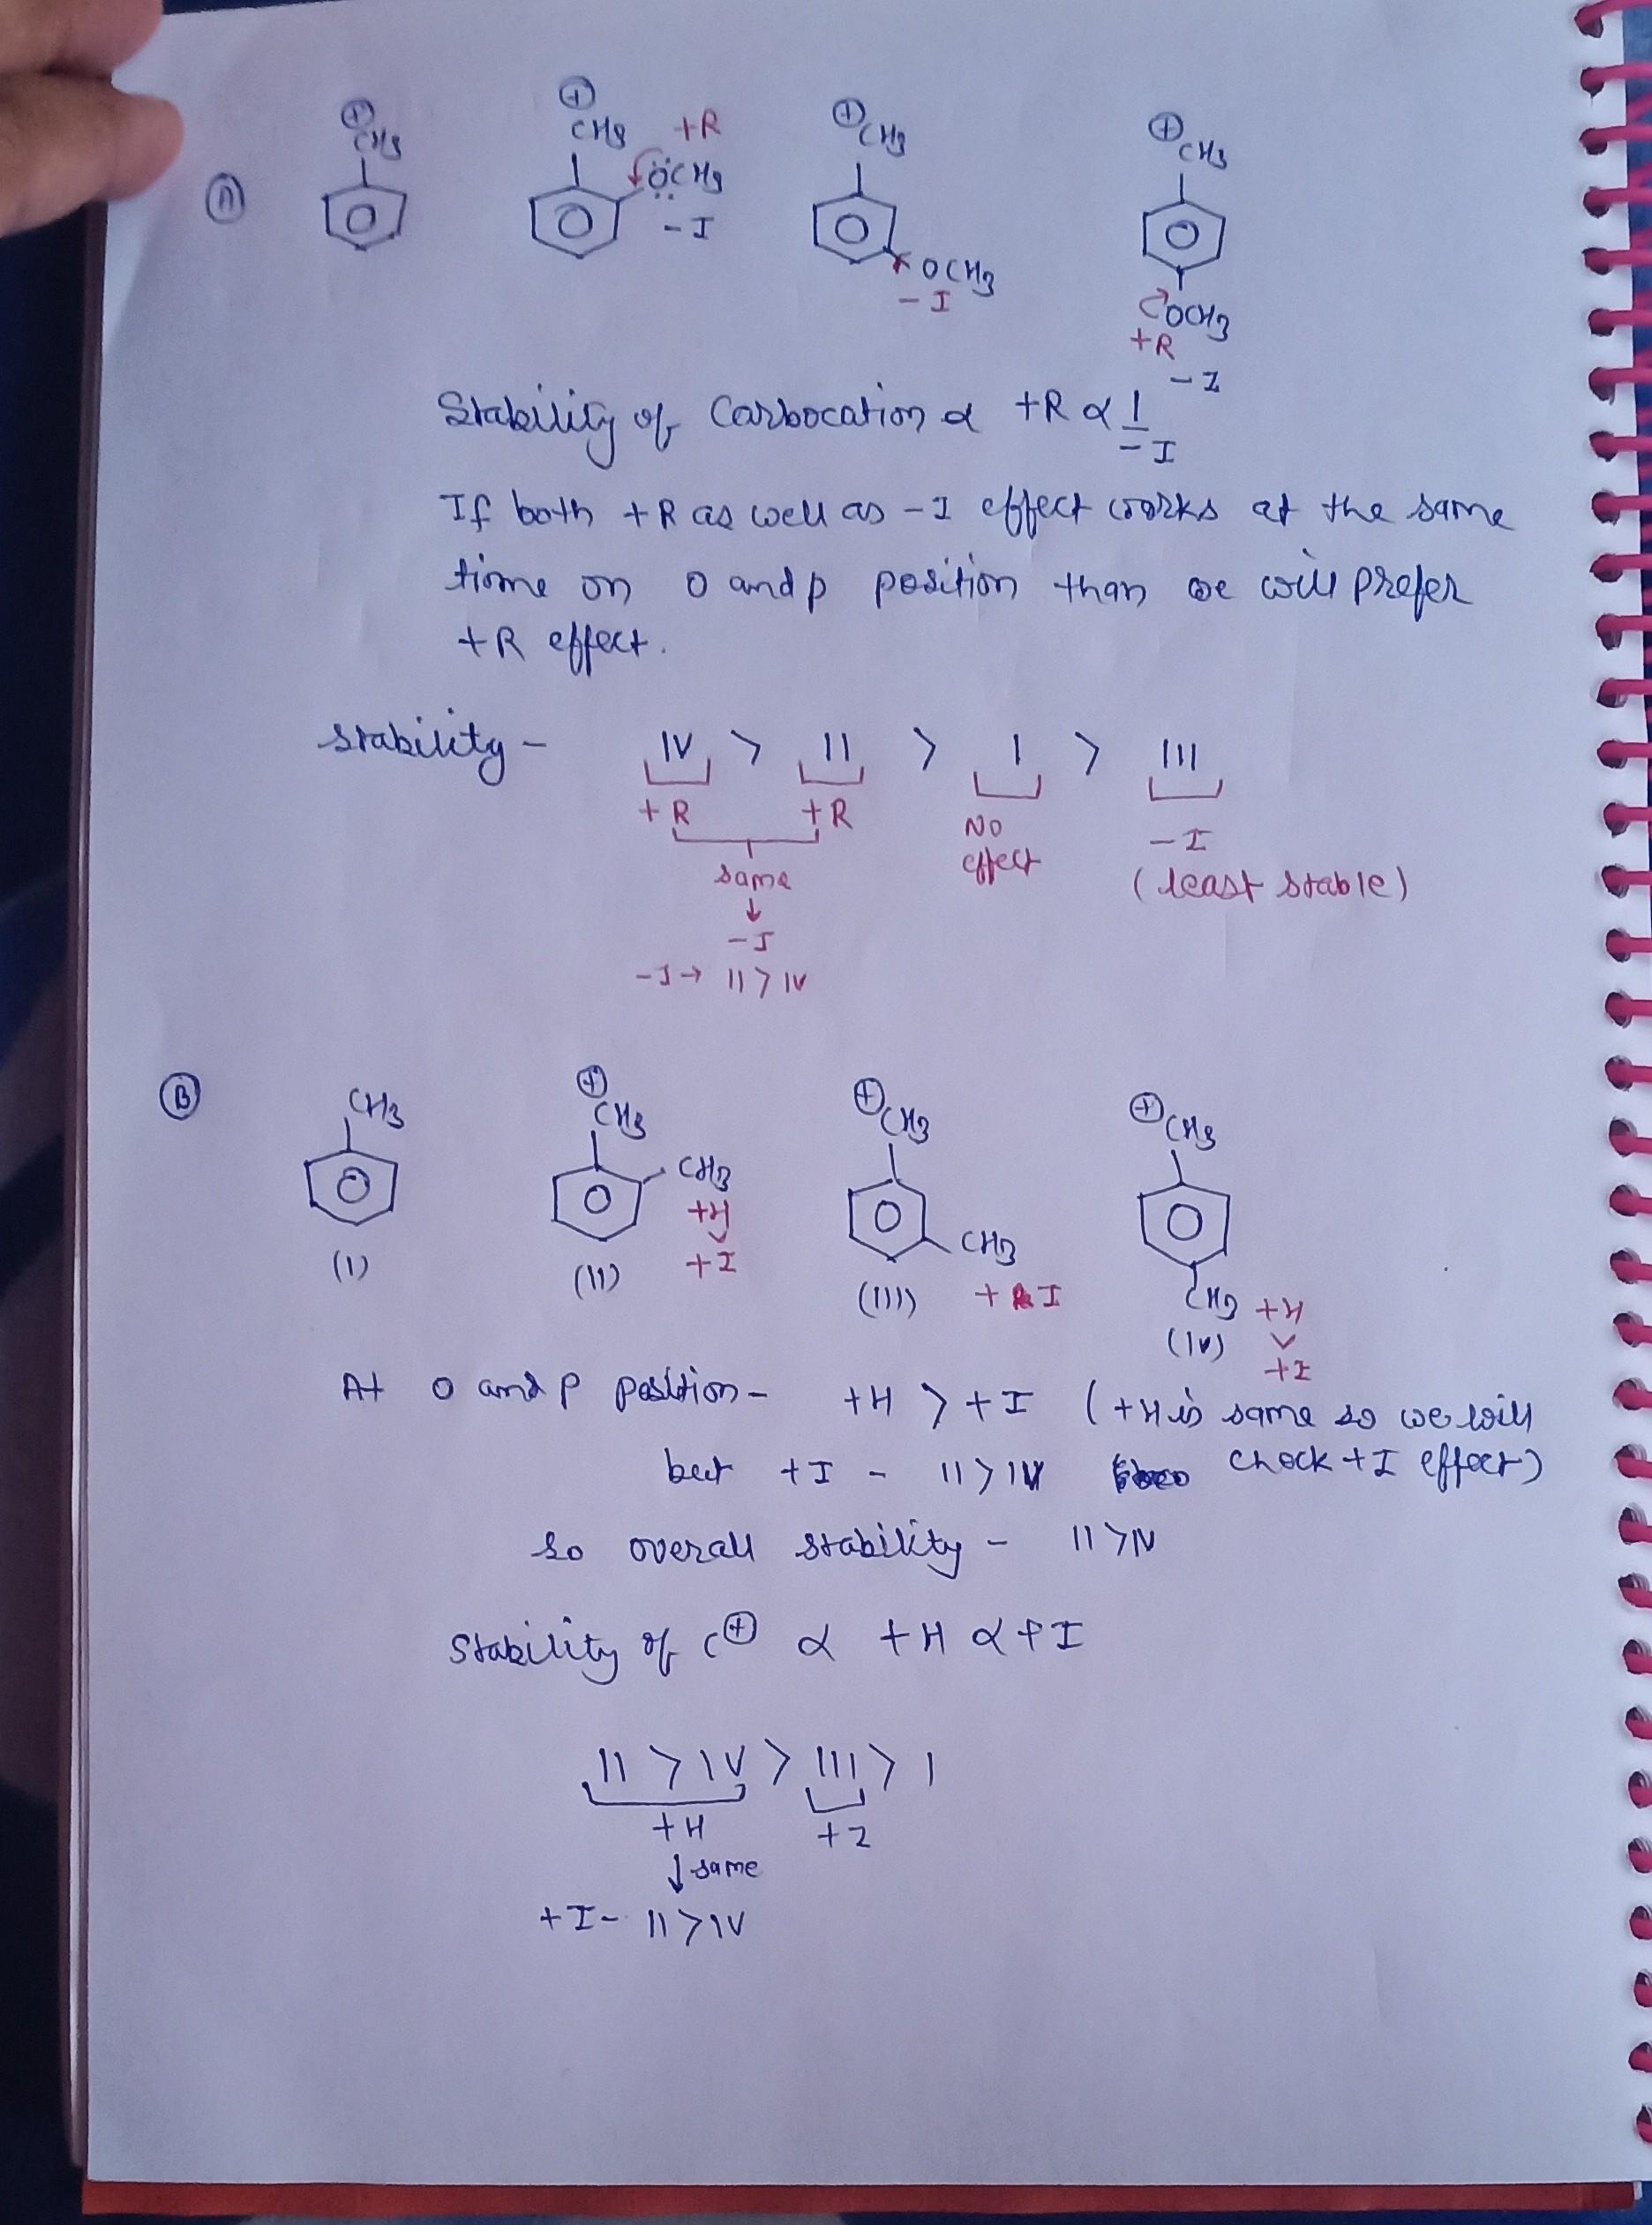 (A)
⊕CH3
⊕CH3 +R
ÖCH3
-I
⊕CH3
OCH3
-I
⊕CH3
OCH3
+R
-I
Stability of Carbocation α +R α 1/-I
If both +R as well as -I effect works at the same
time on o and p position than we will prefer
+R effect.
stability - IV > II > I > III
+R +R No effect -I
same (least stable)
↓
-I
-I → II > IV
(B)
CH3
(I)
⊕CH3
CH3
+H
>
+I
(II)
⊕CH3
CH3
(III) +I
⊕CH3
CH3 +H
(IV) >
+I
At o and p position - +H > +I (+H is same so we will
but +I - II > IV check +I effect)
so overall stability - II > IV
Stability of C⊕ α +H α +I
II > IV > III > I
+H +I
↓ same
+I - II > IV